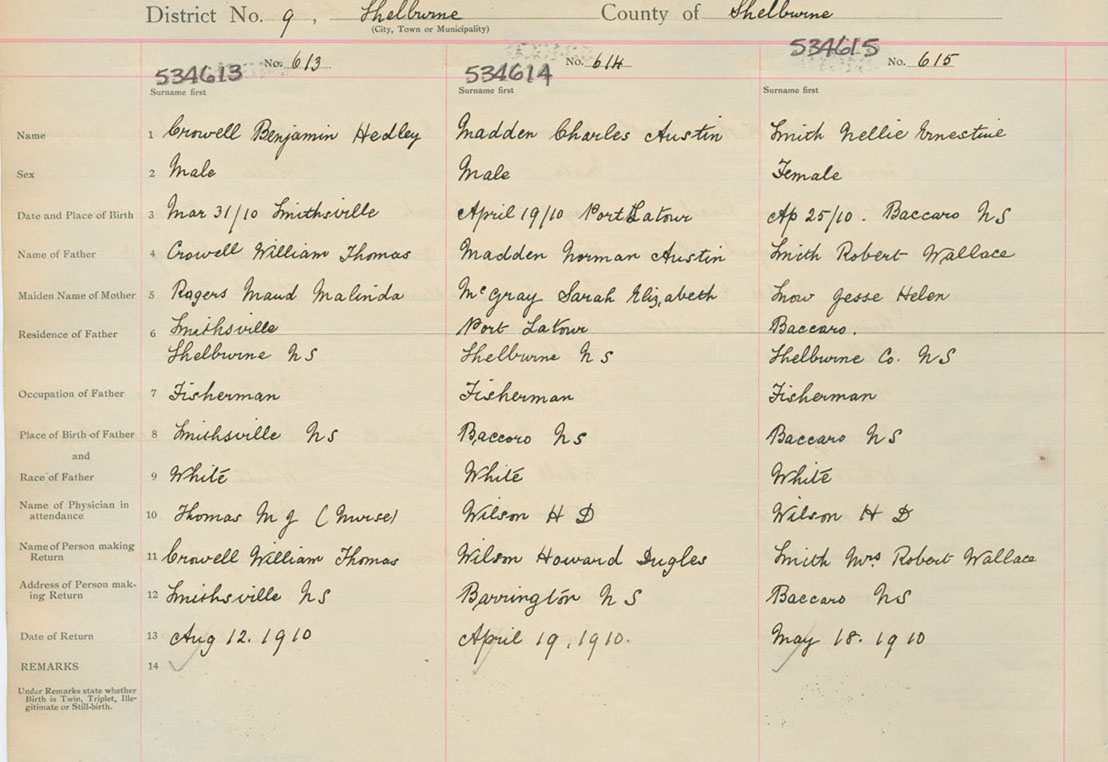 District No. 9, Shelburne County of Shelburne
(City, Town or Municipality)
534613 No. 613 534614 No. 614 534615 No. 615
Surname first Surname first Surname first
Name 1 Crowell Benjamin Hedley Madden Charles Austin Smith Nellie Ernestine
Sex 2 Male Male Female
Date and Place of Birth 3 Mar 31/10 Smithsville April 19/10 Port Latour Ap 25/10. Baccaro NS
Name of Father 4 Crowell William Thomas Madden Norman Austin Smith Robert Wallace
Maiden Name of Mother 5 Rogers Maud Malinda McGray Sarah Elizabeth Snow Jesse Helen
Residence of Father 6 Smithsville Port Latour Baccaro.
Shelburne NS Shelburne NS Shelburne Co. NS
Occupation of Father 7 Fisherman Fisherman Fisherman
Place of Birth of Father 8 Smithsville NS Baccoro NS Baccaro NS
and
Race of Father 9 White White White
Name of Physician in
attendance 10 Thomas M J (Nurse) Wilson H D Wilson H D
Name of Person making
Return 11 Crowell William Thomas Wilson Howard Dugles Smith Mrs Robert Wallace
Address of Person mak-
ing Return 12 Smithsville NS Barrington NS Baccaro NS
Date of Return 13 Aug 12. 1910 April 19, 1910. May 18. 1910
REMARKS 14
Under Remarks state whether
Birth is Twin, Triplet, Ille-
gitimate or Still-birth.